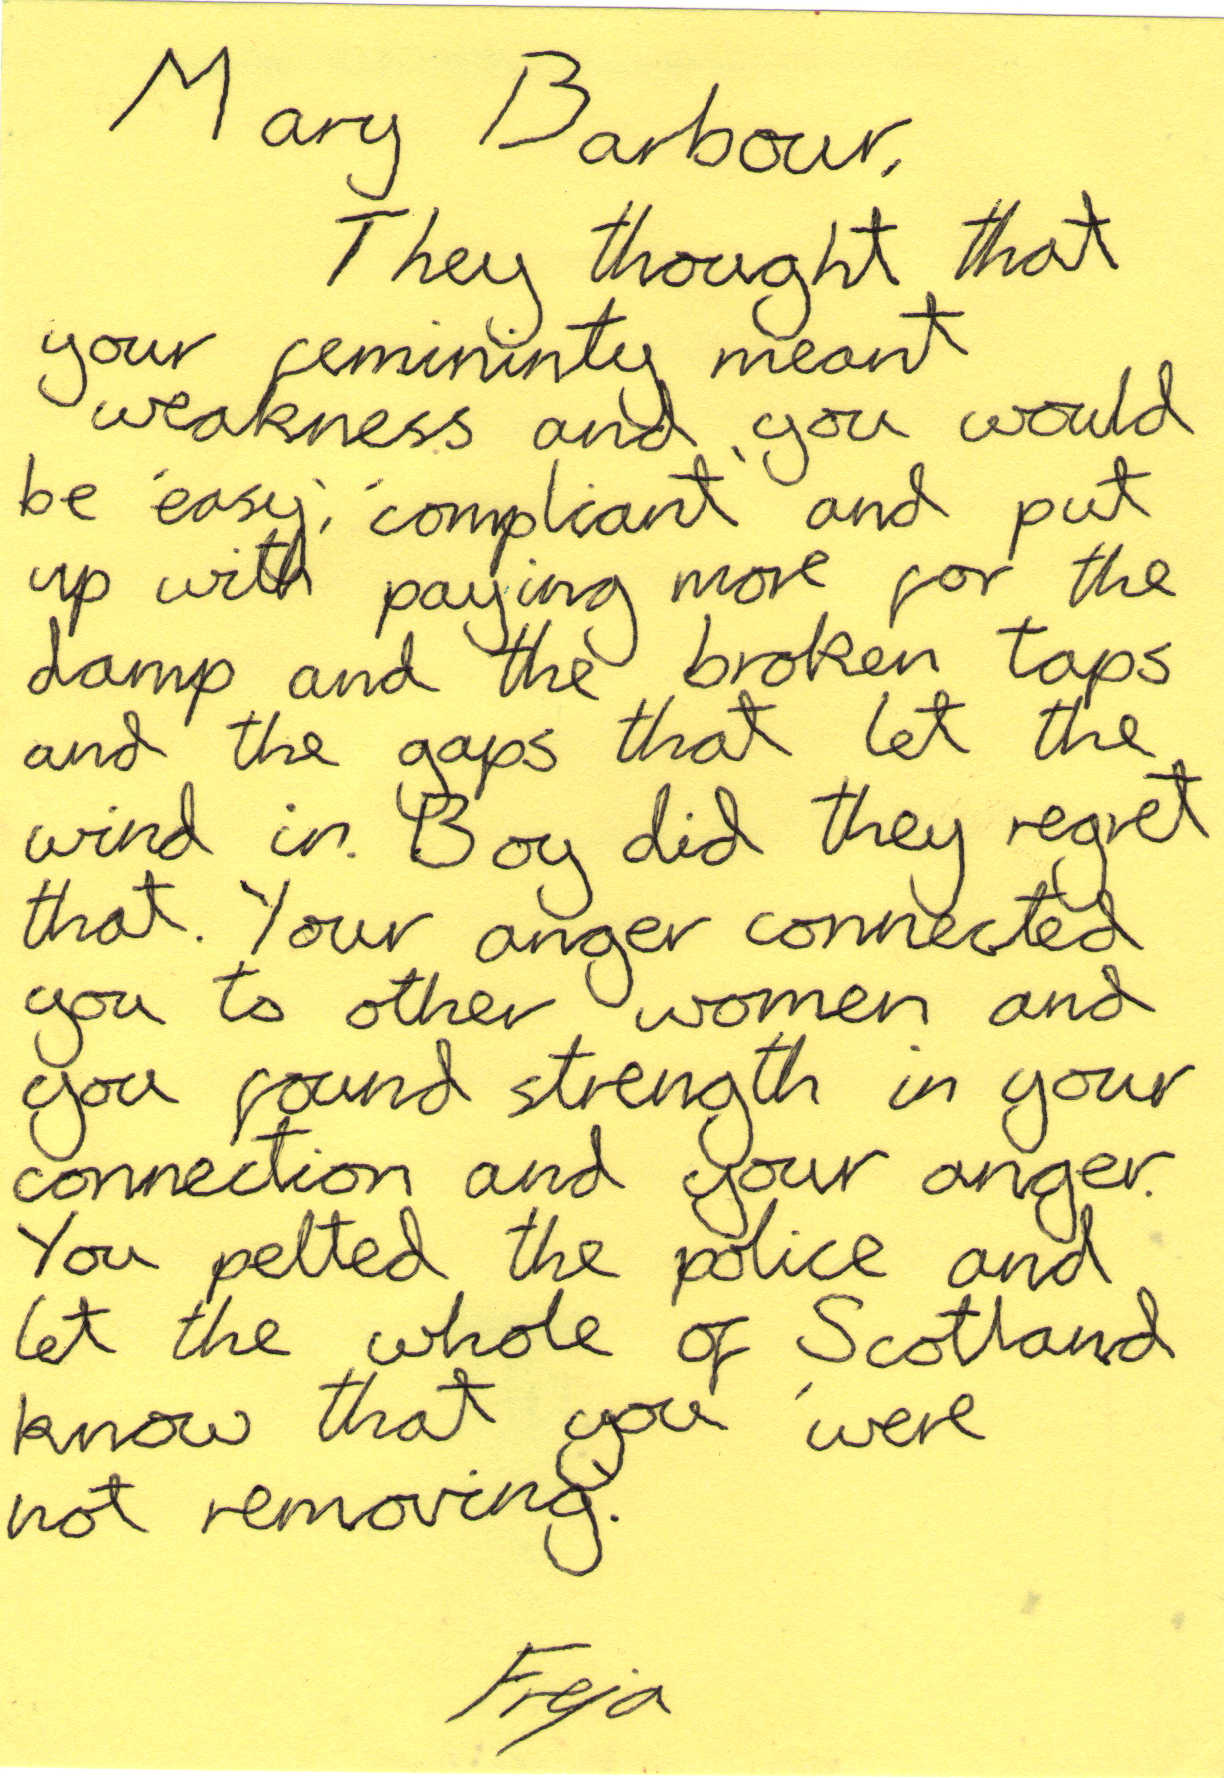 Mary Barbour,
They thought that
your femininty meant
weakness and you would
be 'easy', 'compliant' and put
up with paying more for the
damp and the broken taps
and the gaps that let the
wind in. Boy did they regret
that. Your anger connected
you to other women and
you found strength in your
connection and your anger.
You pelted the police and
let the whole of Scotland
know that you 'were
not removing'.
Freja